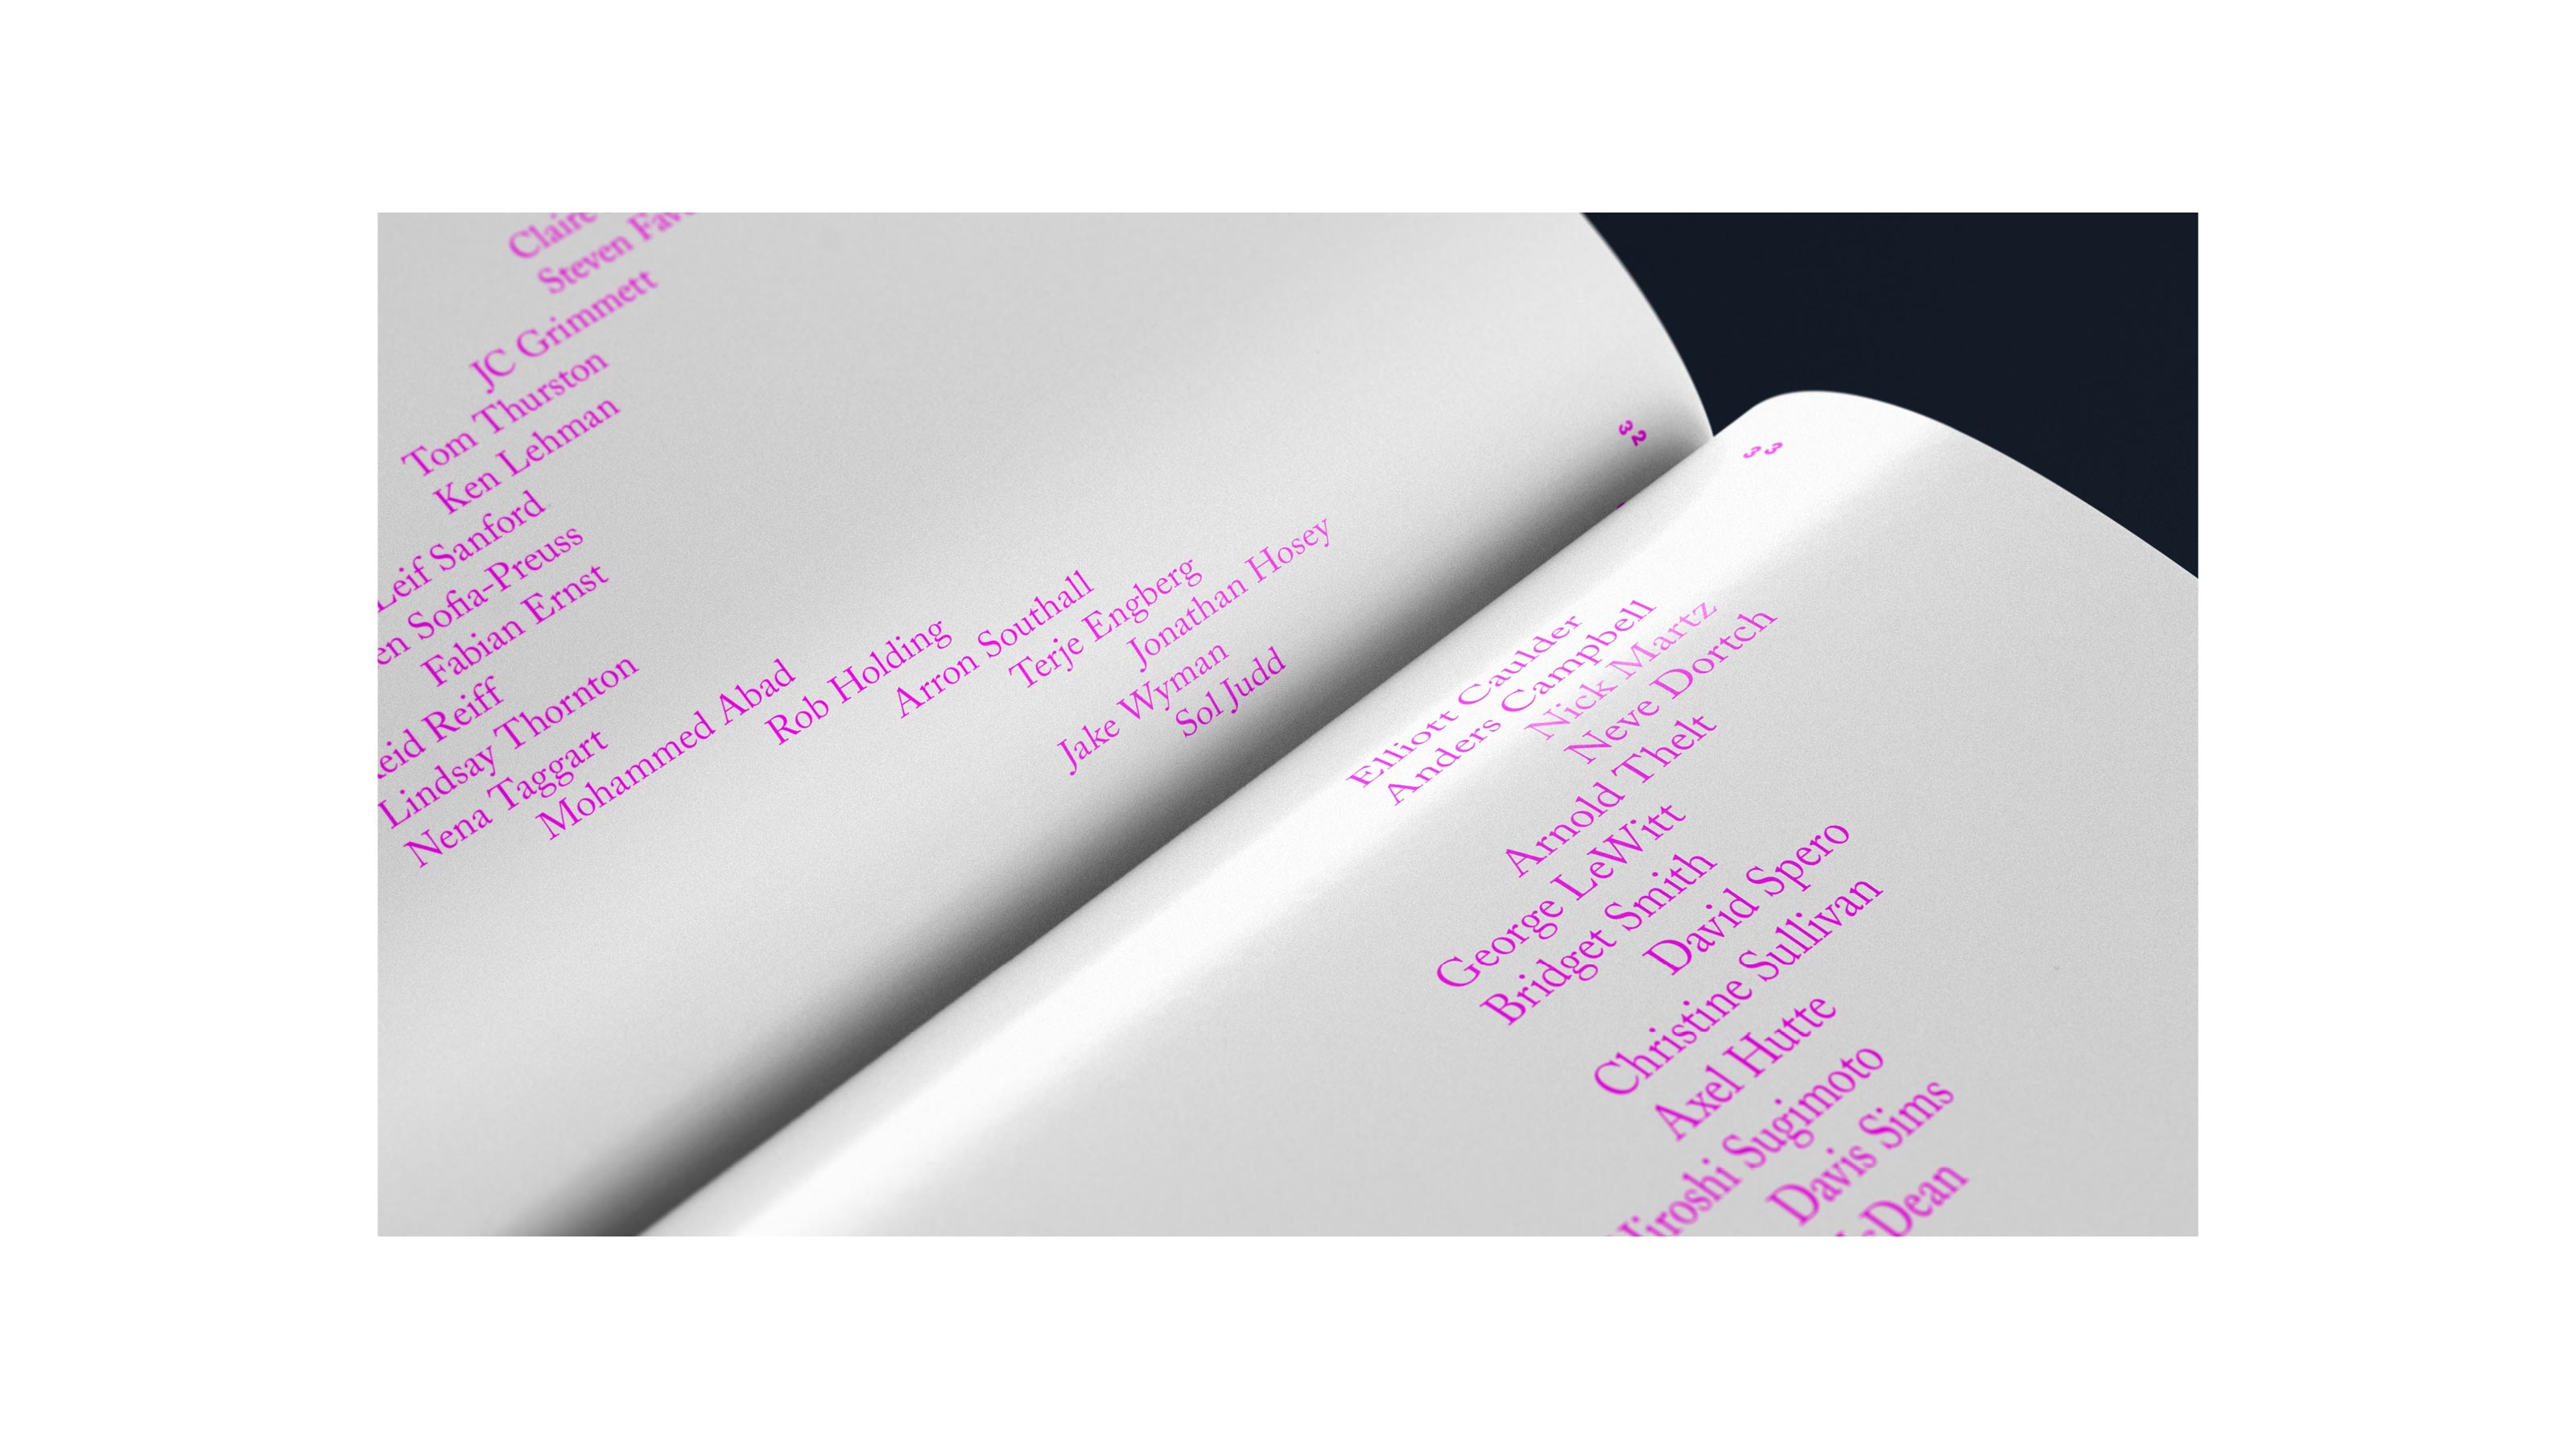 Claire
Steven
JC Grimmett
Tom Thurston
Ken Lehman
Leif Sanford
Sofia-Preuss
Fabian Ernst
Reiff
Lindsay Thornton
Nena Taggart
Mohammed Abad
Rob Holding
Arron Southall
Terje Engberg
Jonathan Hosey
Jake Wyman
Sol Judd
32
33
Elliott Caulder
Anders Campbell
Nick Martz
Neve Dortch
Arnold Thelt
George LeWitt
Bridget Smith
David Spero
Christine Sullivan
Axel Hutte
Hiroshi Sugimoto
Davis Sims
Dean